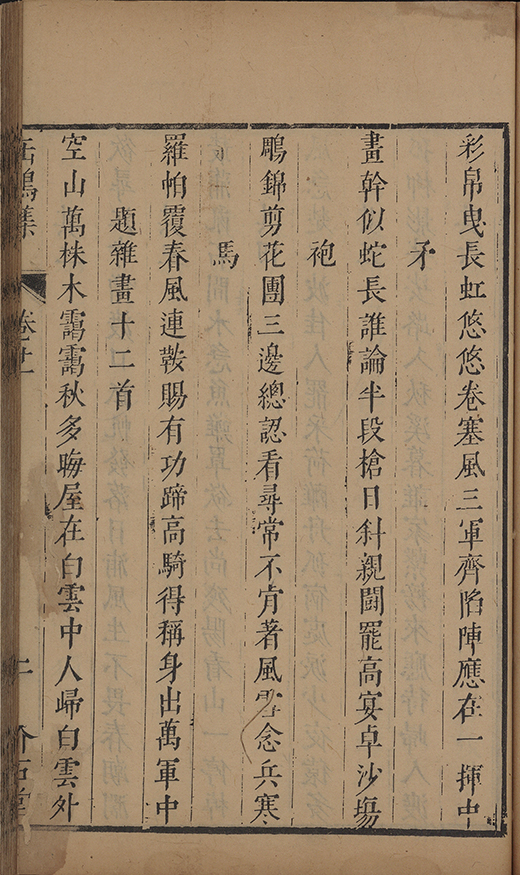 彩帛曳長虹悠悠卷塞風三軍齊陷陣應在一揮中
矛
畫幹似蛇長誰論半段槍日斜親鬪罷高宴卓沙塲
袍
鵰錦剪花團三邊總認看尋常不肯著風雪念兵寒
馬
羅帕覆春風連鞍賜有功蹄高騎得稱身出萬軍中
題雜畫十二首
空山萬株木靄靄秋多晦屋在白雲中人歸白雲外
缶鳴集
卷十一
二